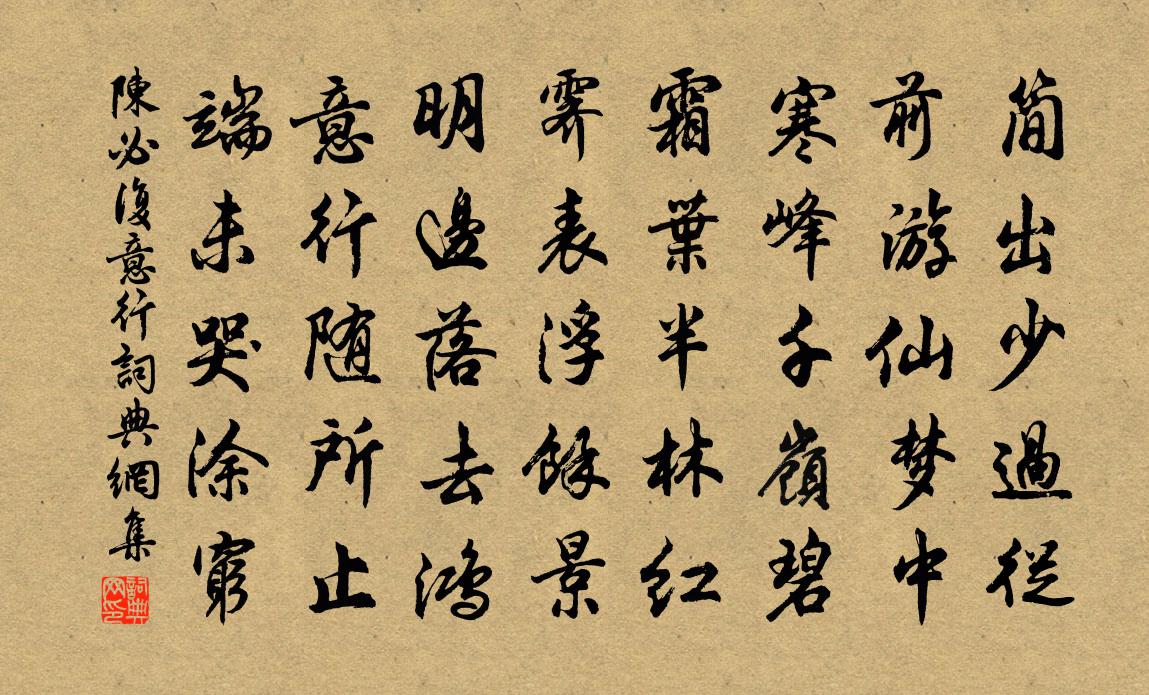 简出少過從
前游仙梦中
寒峰千嶺碧
霜葉半林红
霽表浮餘景
明邊落去鸿
意行随所止
端未哭涂窮
陳必復意行詞典網集
詞典网印